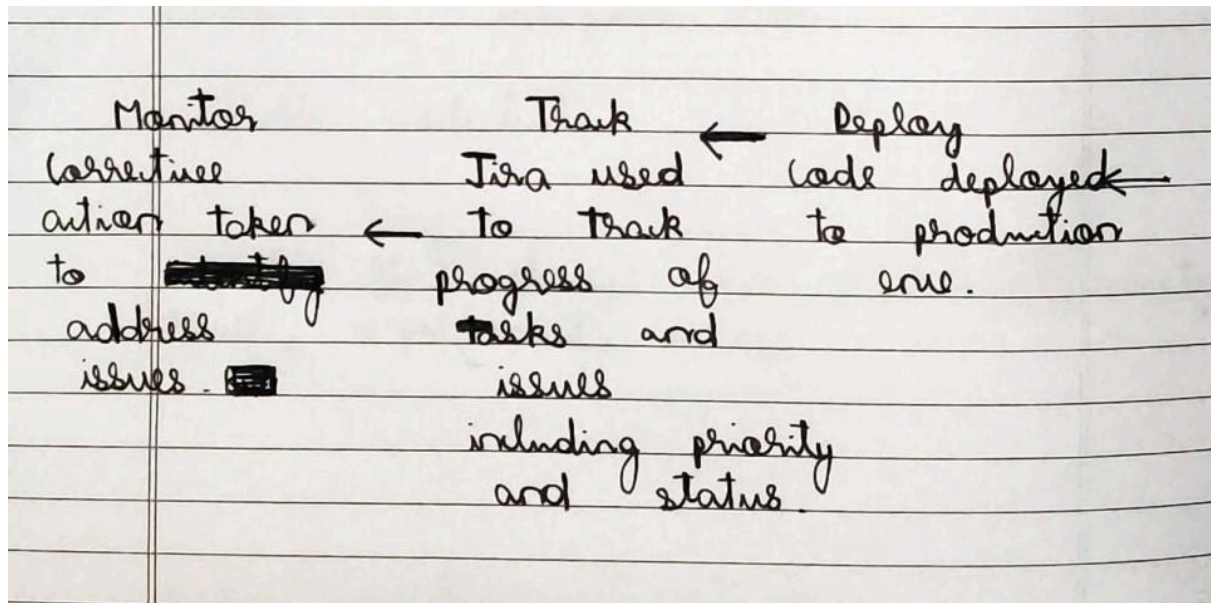 Monitor
Corrective
action taken
to
address
issues.
Track
Jira used
to track
progress of
tasks and
issues
including priority
and status.
Deploy
code deployed
to production
env.